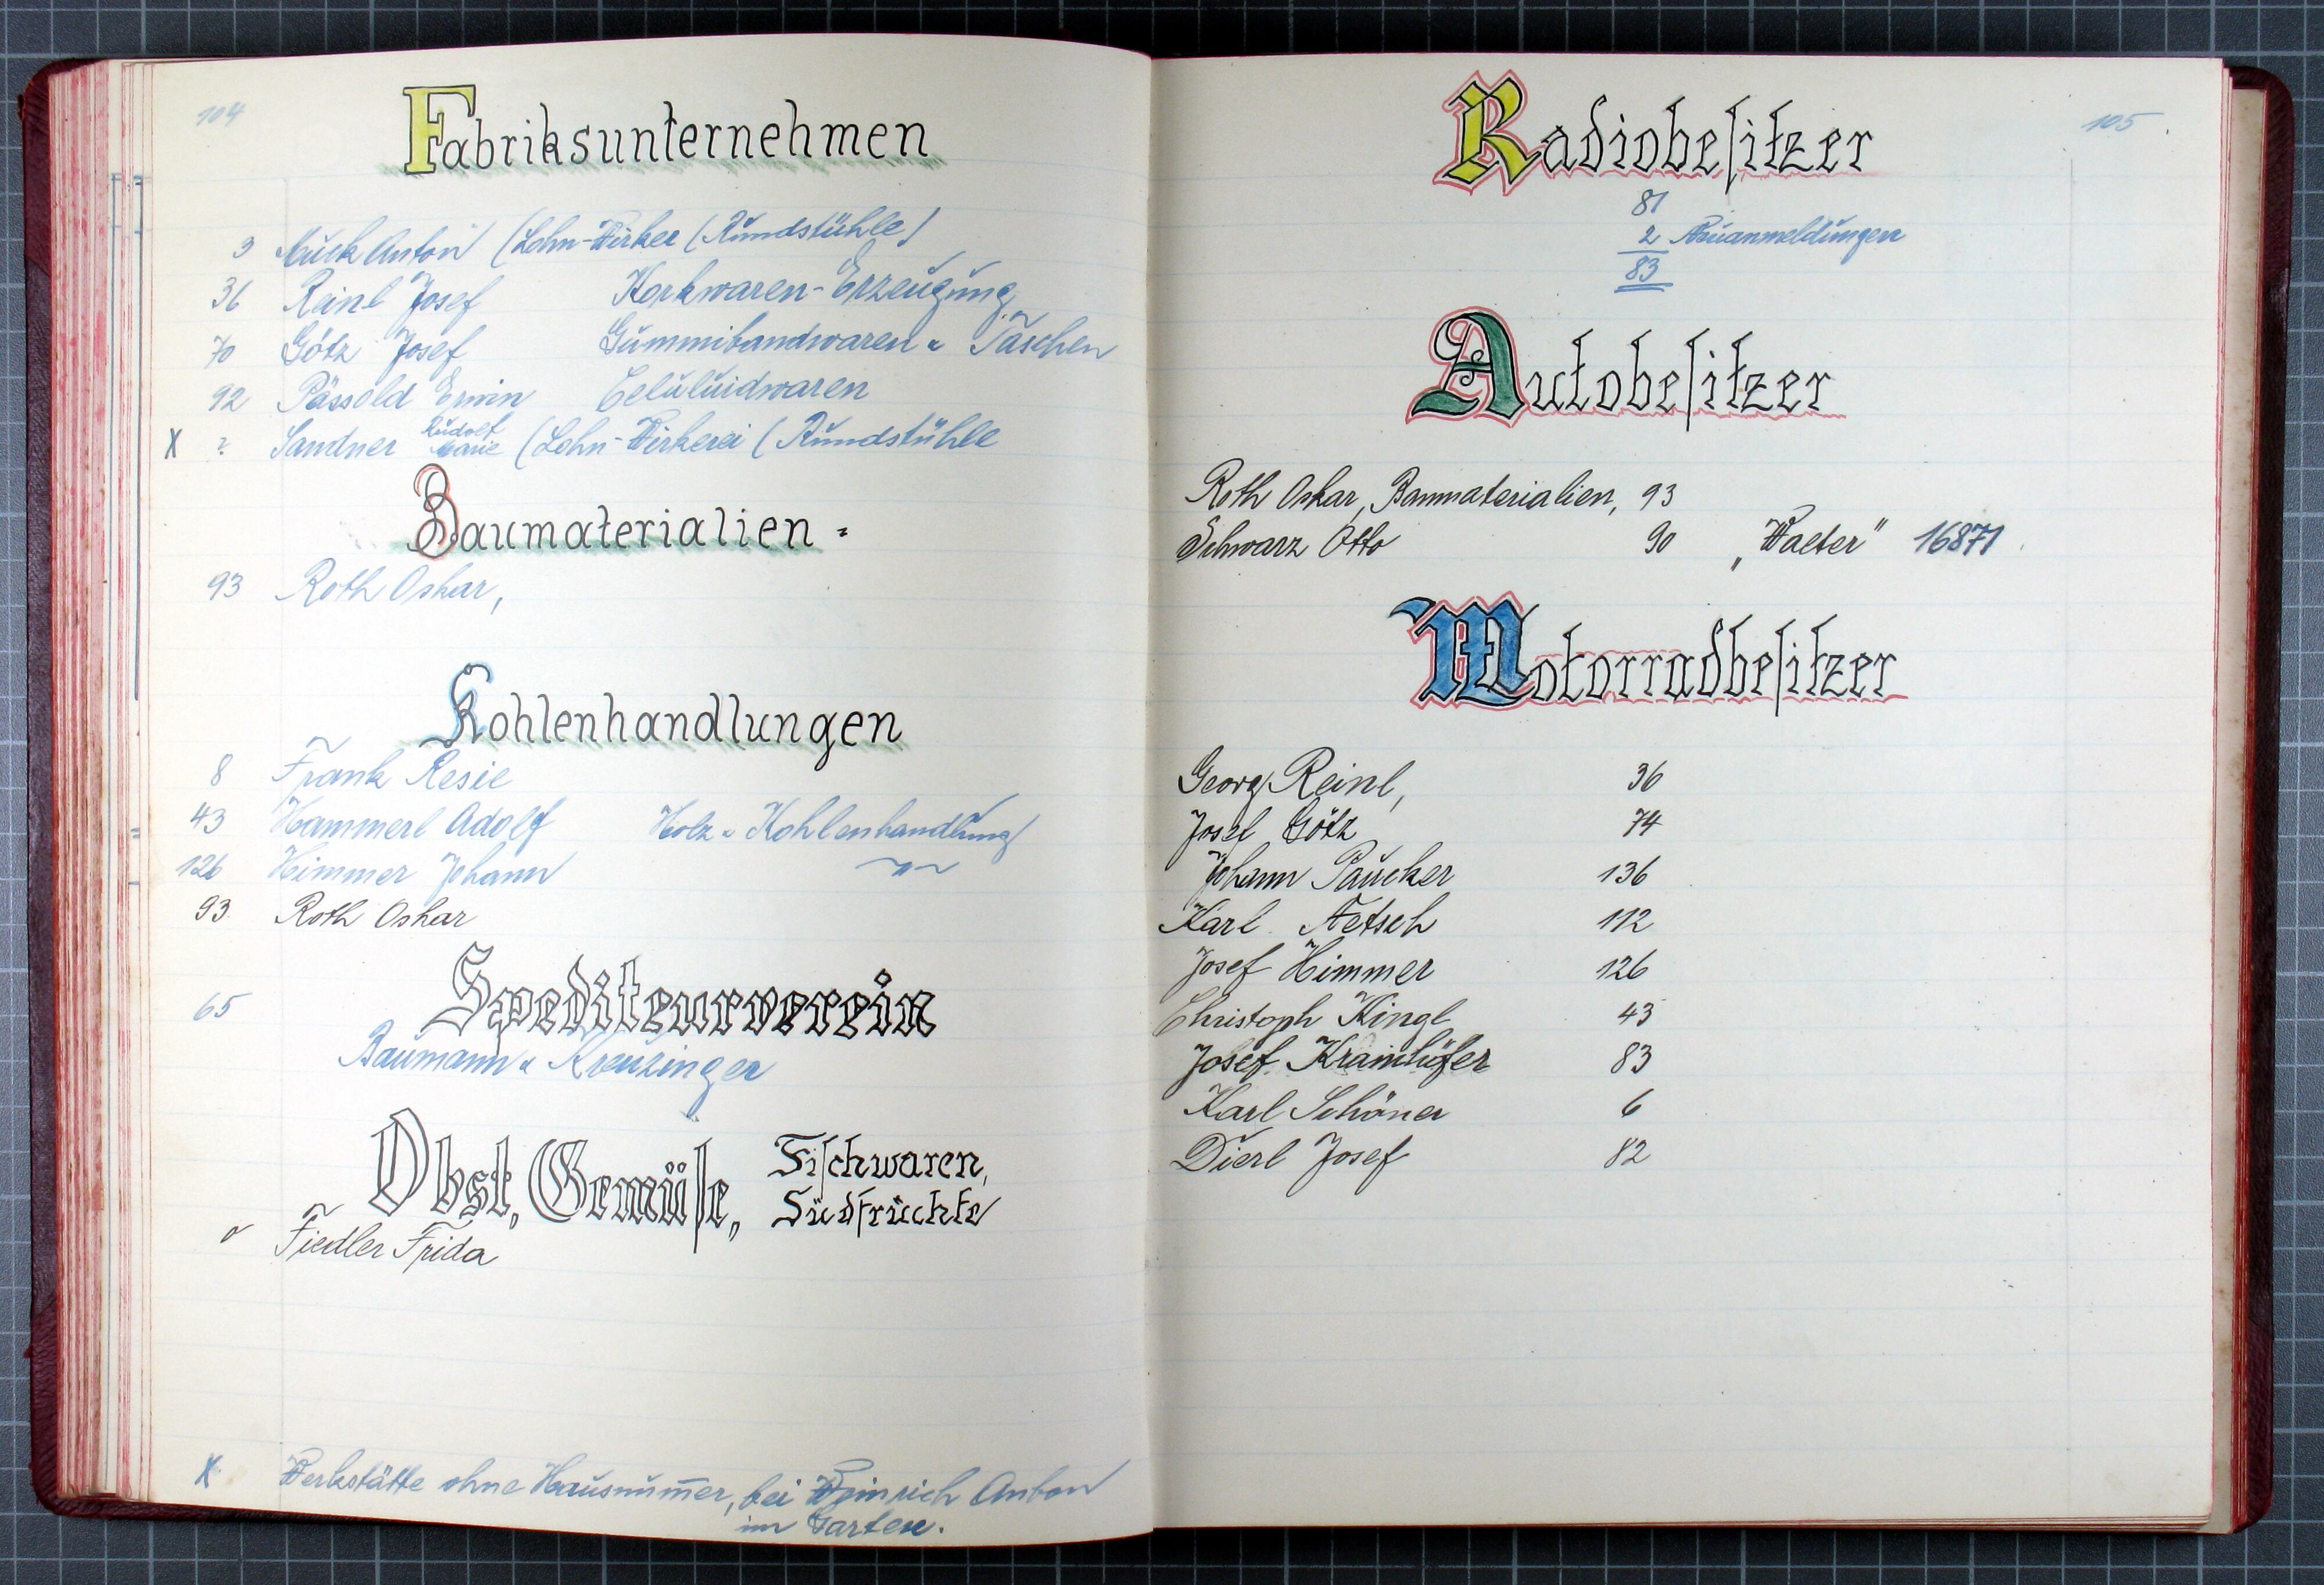 104
Fabriksunternehmen
3 Muck Anton (Lohn-Wirker (Rundstühle)
36 Reinl Josef Korkwaren-Erzeugung
70 Götz Josef Gummibandwaren u Taschen
92 Pässold Erwin Celuluidwaren
X ? Sandner Rudolf Marie (Lohn-Wirkerei (Rundstühle
Baumaterialien =
93 Roth Oskar,
Kohlenhandlungen
8 Frank Resie
43 Hammerl Adolf Holz u Kohlenhandlung
126 Himmer Johann —"—
93 Roth Oskar
65 Spediteurverein
Baumann u Kreuzinger
Obst, Gemüse, Fischwaren,
Südfrüchte
Fiedler Frida
X Werkstätte ohne Hausnum̅er, bei Weinrich Anton
im Garten.
105
Radiobesitzer
81
2 Neuanmeldungen
83
Autobesitzer
Roth Oskar, Baumaterialien, 93
Schwarz Otto 90 „Walter" 16871
Motorradbesitzer
Georg Reinl, 36
Josef Götz 74
Johann Paucker 136
Karl Netsch 112
Josef Himmer 126
Christoph Kingl 43
Josef Krainhöfer 83
Karl Schöner 6
Dierl Josef 82